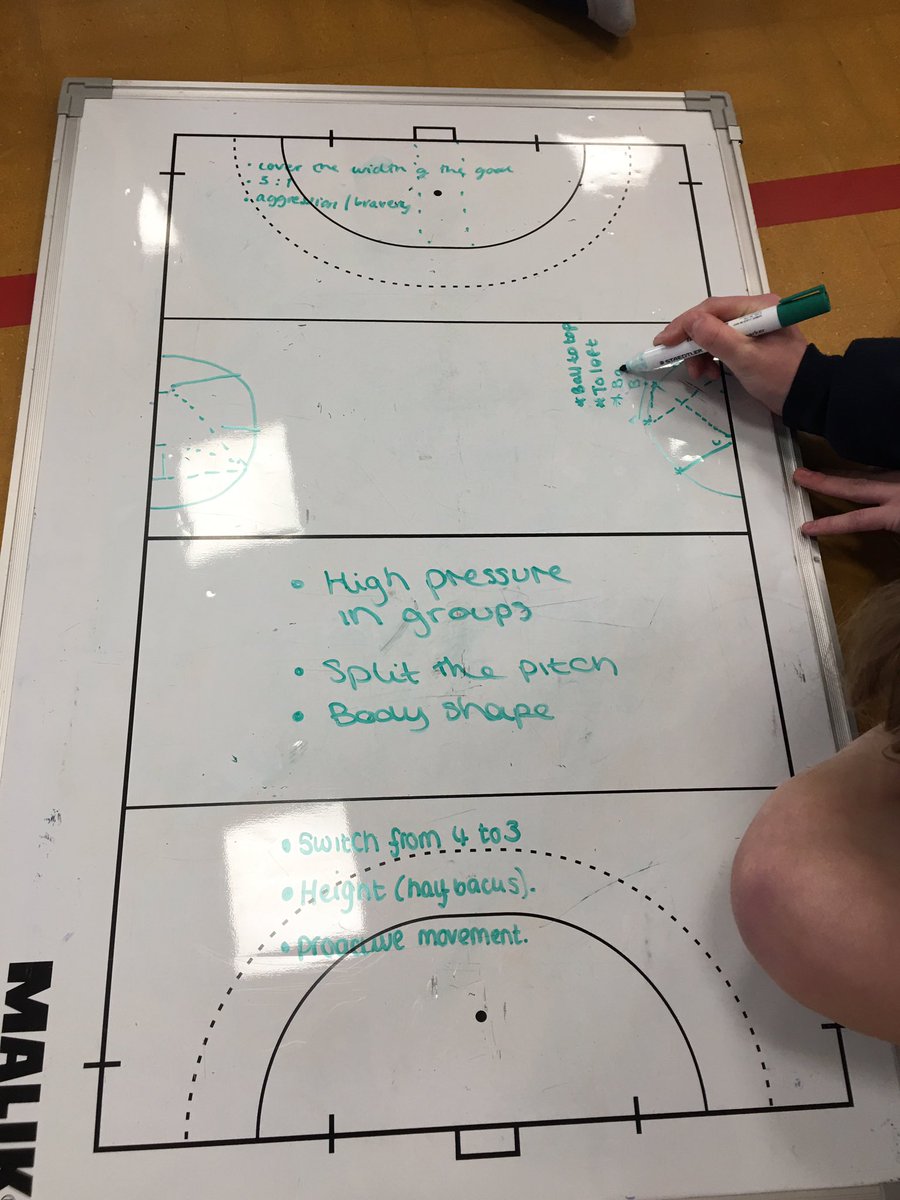 • cover the width of the goal
• 5:1
• aggression / bravery
* Ball to top
* To left
* Ba
B
STAEDTLER
• High pressure
in groups
• Split the pitch
• Body shape
• Switch from 4 to 3
• Height (halfbacks).
• proactive movement.
MALIK